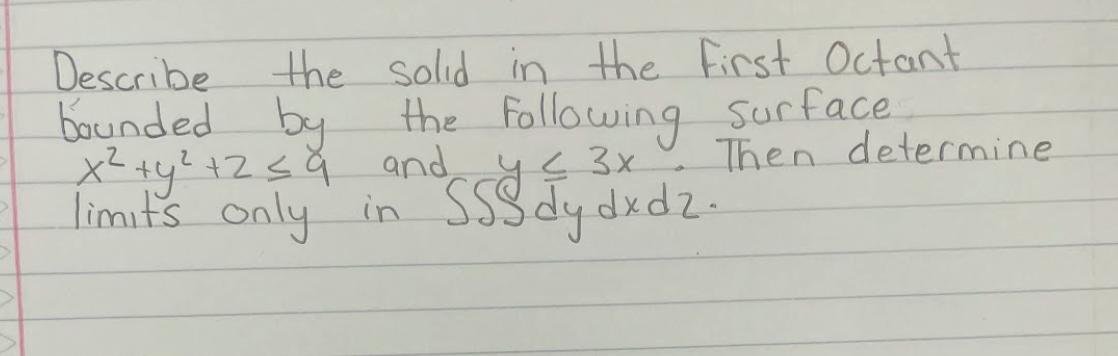 Describe the solid in the first Octant
bounded by the following surface
x² + y² + z ≤ 9 and y ≤ 3x. Then determine
limits only in ∫∫∫ dy dx dz.